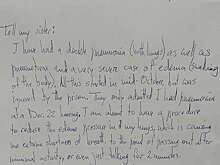 Tell my sister:
I have had a double pneumonia (both lungs) as well as
pneumothorax and a very severe case of edema (swelling
of the body). All this started in mid-October, but was
ignored by the prison. They only admitted I had pneumonia
at a Dec 22 hearing. I am about to have a procedure
to reduce the edema pressure on my lungs, which is causing
me extreme shortness of breath to the point of passing out after
minimal activity, or even just talking for 2 minutes.